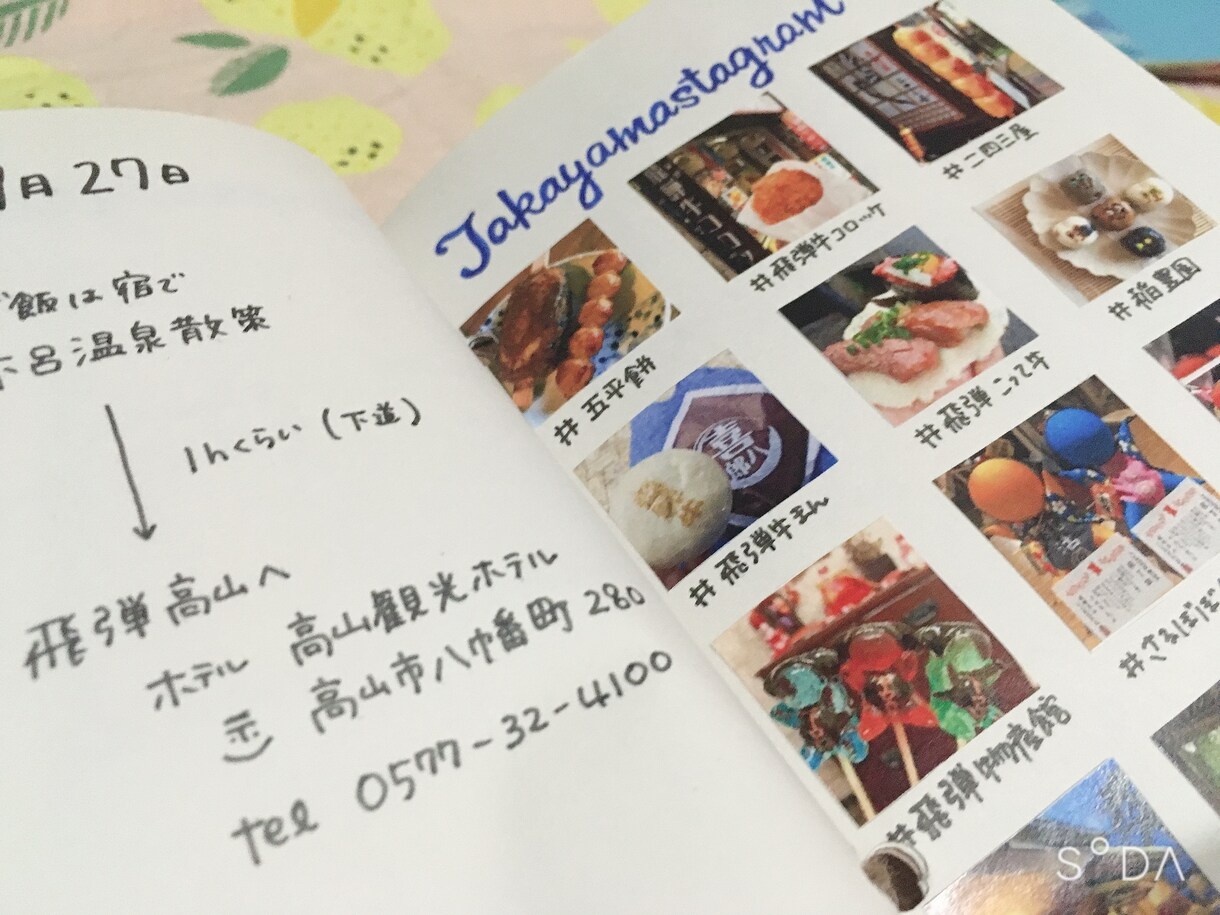 月27日
ご飯は宿で
下呂温泉散策
1hくらい（下道）
飛弾高山へ
ホテル 高山観光ホテル
高山市八幡町280
tel 0577-32-4100
Takayamastagram
#二四三屋
#飛弾牛コロッケ
#稲豊園
#五平餅
#飛弾こって牛
#飛弾牛まん
#さるぼぼ
#飛弾物産館
喜八郎
SODA